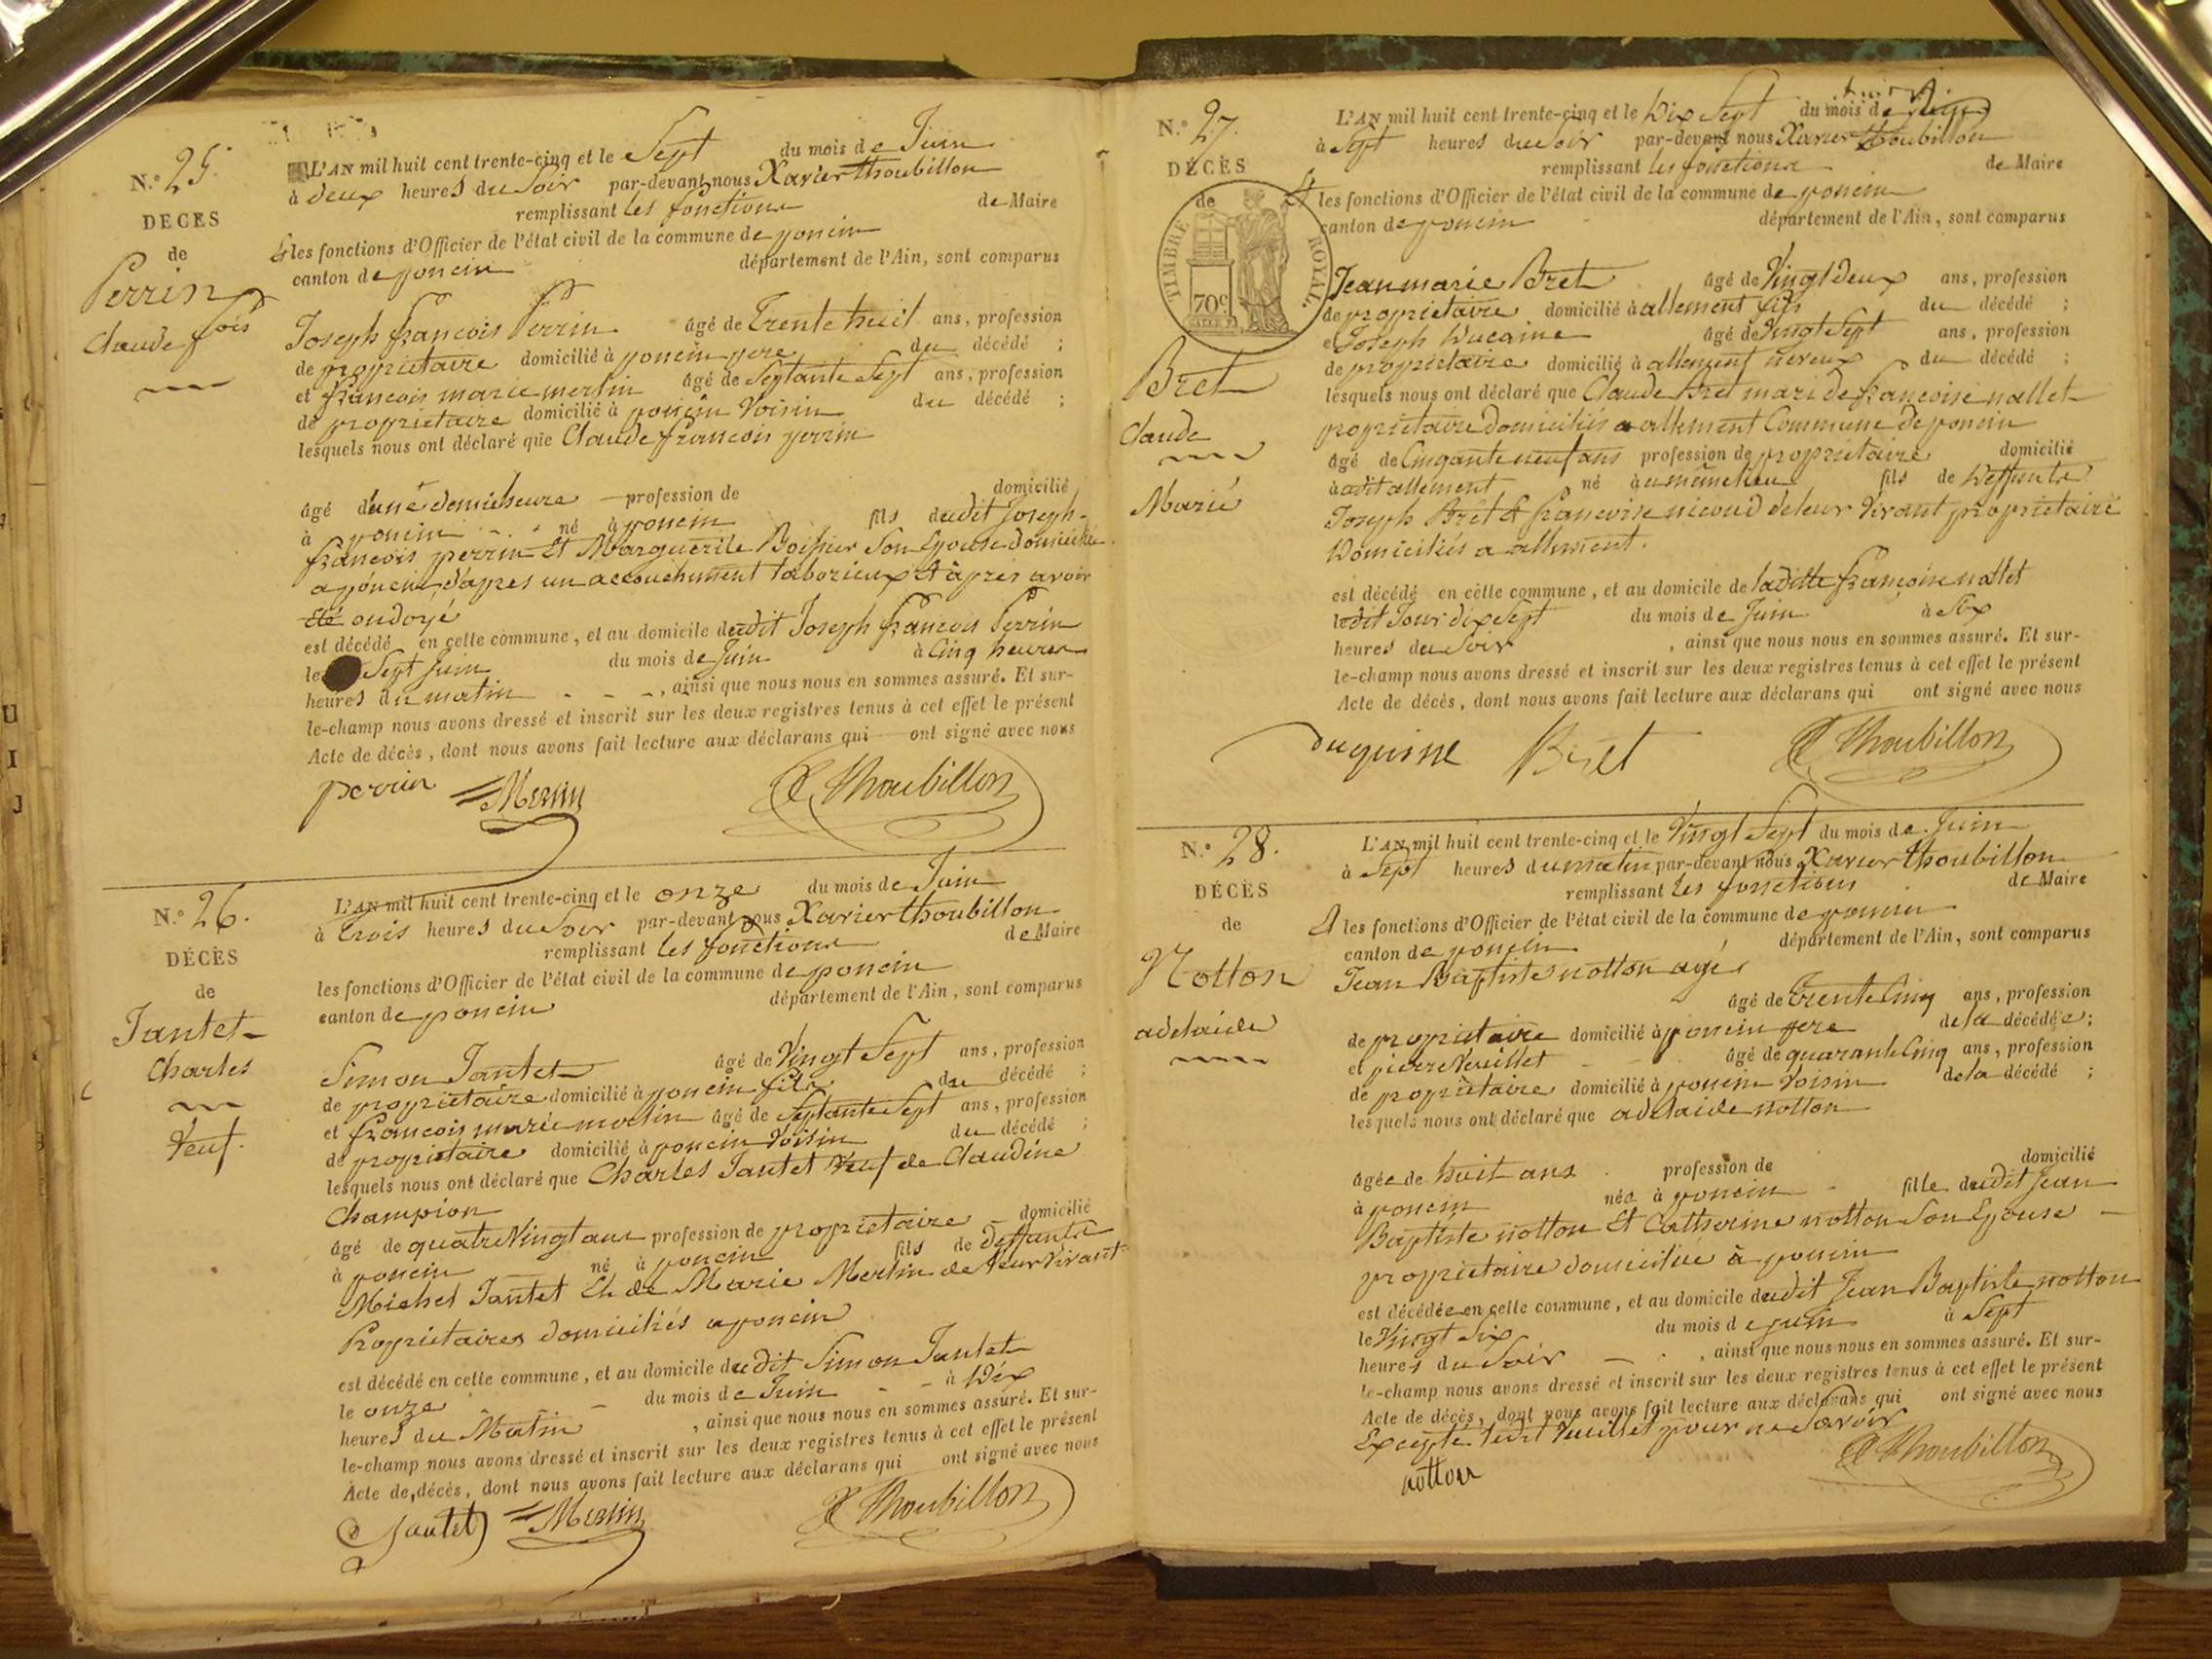 N.º 25.
DECES
de
Perrin
Claude fois
L'AN mil huit cent trente-cinq et le Sept du mois de Juin
à deux heures du Soir par-devant nous Xavier thoubillon
remplissant les fonctions de Maire
les fonctions d'Officier de l'état civil de la commune de poncin
canton de poncin département de l'Ain, sont comparus
Joseph francois Perrin âgé de Trente huit ans, profession
de proprietaire domicilié à poncin pere du décédé ;
et francois marie merlin âgé de Septante Sept ans, profession
de proprietaire domicilié à poncin Voisin du décédé ;
lesquels nous ont déclaré que Claude francois perrin
âgé d'une demieheure profession de domicilié
à poncin né à poncin fils dudit Joseph-
francois perrin Et Marguerite Boissier Son Epouse domiciliés
a poncin d'apres un accouchement laborieux et après avoir
été ondoyé
est décédé en celle commune, et au domicile dudit Joseph francois Perrin
le Sept Juin du mois de Juin à Cinq heures
heures du matin , ainsi que nous nous en sommes assuré. Et sur-
le-champ nous avons dressé et inscrit sur les deux registres tenus à cet effet le présent
Acte de décès, dont nous avons fait lecture aux déclarans qui ont signé avec nous
perrin Merlin X Thoubillon
N.º 26.
DÉCÈS
de
Jantet
Charles
Veuf.
L'AN mil huit cent trente-cinq et le onze du mois de Juin
à trois heures du Soir par-devant nous Xavier thoubillon
remplissant les fonctions de Maire
les fonctions d'Officier de l'état civil de la commune de poncin
canton de poncin département de l'Ain, sont comparus
Simon Jantet âgé de Vingt Sept ans, profession
de proprietaire domicilié à poncin fils du décédé ;
et francois marie merlin âgé de Septante Sept ans, profession
de proprietaire domicilié à poncin Voisin du décédé ;
lesquels nous ont déclaré que Charles Jantet Veuf de Claudine
Champion
âgé de quatre Vingt ans profession de proprietaire domicilié
à poncin né à poncin fils de deffunts
Michel Jantet Et de Marie Merlin de leur Vivant
Proprietaires domiciliés a poncin
est décédé en celle commune, et au domicile dudit Simon Jantet
le onze du mois de Juin à Dix
heures du Matin , ainsi que nous nous en sommes assuré. Et sur-
le-champ nous avons dressé et inscrit sur les deux registres tenus à cet effet le présent
Acte de décès, dont nous avons fait lecture aux déclarans qui ont signé avec nous
Jantet Merlin X Thoubillon
N.º 27.
DÉCÈS
de
TIMBRE ROYAL.
70c
Bret
Claude
Marié
L'AN mil huit cent trente-cinq et le Dix Sept du mois de Juin
à Sept heures du Soir par-devant nous Xavier thoubillon
remplissant les fonctions de Maire
les fonctions d'Officier de l'état civil de la commune de poncin
canton de poncin département de l'Ain, sont comparus
Jean marie Bret âgé de Vingt deux ans, profession
de proprietaire domicilié à allement fils du décédé ;
et Joseph Ducaine âgé de Vingt Sept ans, profession
de proprietaire domicilié à allement neveux du décédé ;
lesquels nous ont déclaré que Claude Bret mari de francoise nallet
proprietaire domiciliés a allement Commune de poncin
âgé de Cinqante neuf ans profession de proprietaire domicilié
à adit allement né à u même lieu fils de Deffunts
Joseph Bret et francoise nicoud de leur Vivant proprietaire
Domiciliés a allement.
est décédé en celle commune, et au domicile de laditte francoise nallet
ledit Jour dix Sept du mois de Juin à Six
heures du Soir , ainsi que nous nous en sommes assuré. Et sur-
le-champ nous avons dressé et inscrit sur les deux registres tenus à cet effet le présent
Acte de décès, dont nous avons fait lecture aux déclarans qui ont signé avec nous
duquine Bret X Thoubillon
N.º 28.
DÉCÈS
de
Notton
adelaide
L'AN mil huit cent trente-cinq et le Vingt Sept du mois de Juin
à Sept heures du matin par-devant nous Xavier thoubillon
remplissant les fonctions de Maire
les fonctions d'Officier de l'état civil de la commune de poncin
canton de poncin département de l'Ain, sont comparus
Jean Baptiste notton agé
âgé de trente Cinq ans, profession
de proprietaire domicilié à poncin pere de la décédée ;
et pierre Veuillet âgé de quarante Cinq ans, profession
de proprietaire domicilié à poncin Voisin de la décédé ;
lesquels nous ont déclaré que adelaide notton
âgée de huit ans profession de domicilié
à poncin née à poncin fille dudit Jean
Baptiste notton Et Catherine notton Son Epouse
proprietaire domicilié à poncin
est décédée en celle commune, et au domicile dudit Jean Baptiste notton
le Vingt Six du mois de juin à Sept
heures du Soir , ainsi que nous nous en sommes assuré. Et sur-
le-champ nous avons dressé et inscrit sur les deux registres tenus à cet effet le présent
Acte de décès, dont nous avons fait lecture aux déclarans qui ont signé avec nous
Excepté ledit Veuillet pour ne Savoir
notton X Thoubillon